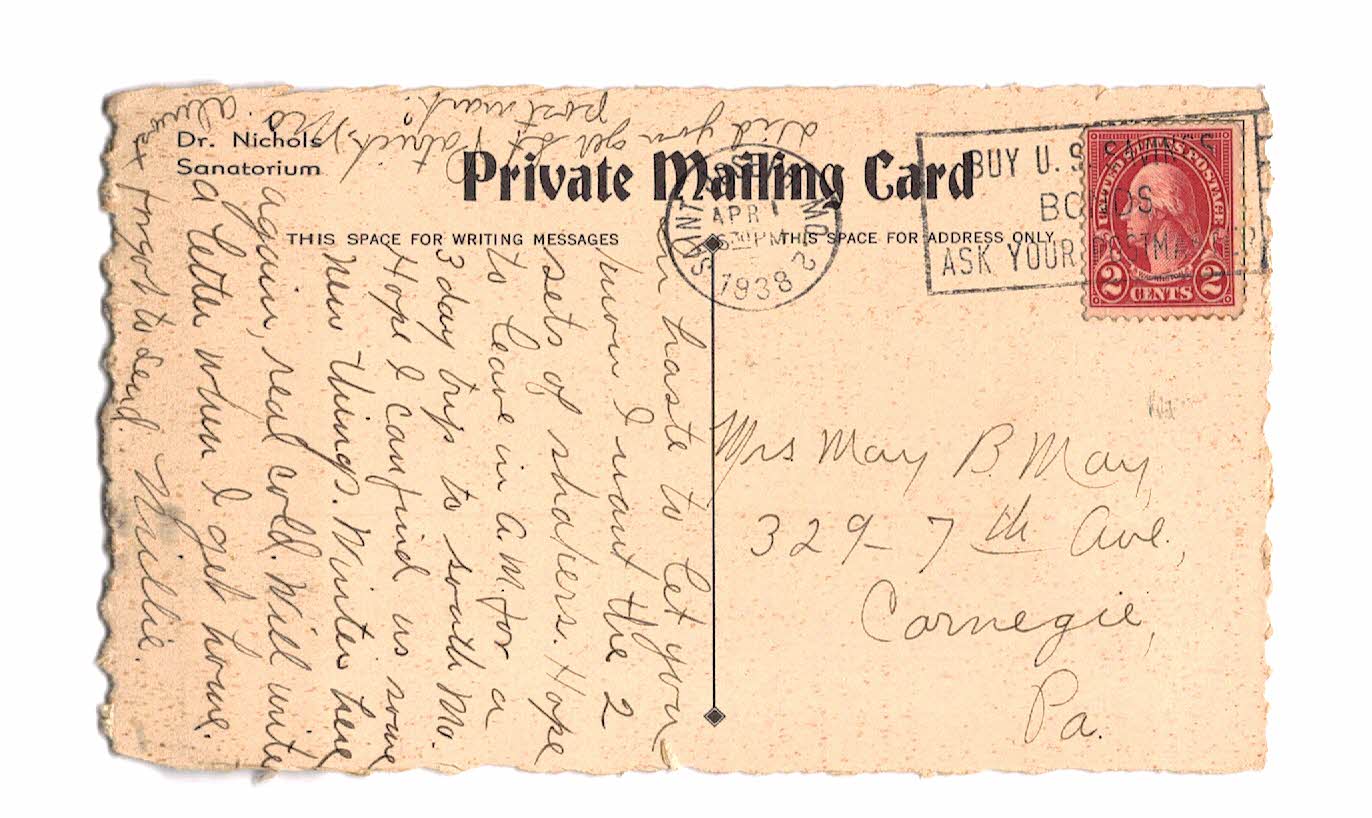 Dr. Nichols
Sanatorium
Private Mailing Card
THIS SPACE FOR WRITING MESSAGES
THIS SPACE FOR ADDRESS ONLY
SAINT JOSEPH MO. 2
APR 1
630 PM
1938
BUY U.S. SAVINGS
BONDS
ASK YOUR POSTMASTER
UNITED STATES POSTAGE
WASHINGTON
2 CENTS 2
In haste to let you
know I want the 2
sets of shakers. Hope
to leave in A.M. for a
3 day trip to south Mo.
Hope I can find us some
new things. Winter here
again, real cold. Will write
a letter when I get home.
almost forgot to send Millie.
did you get St Patrick, Mo.
postmark.
Mrs May B. May,
329-7th Ave.,
Carnegie,
Pa.